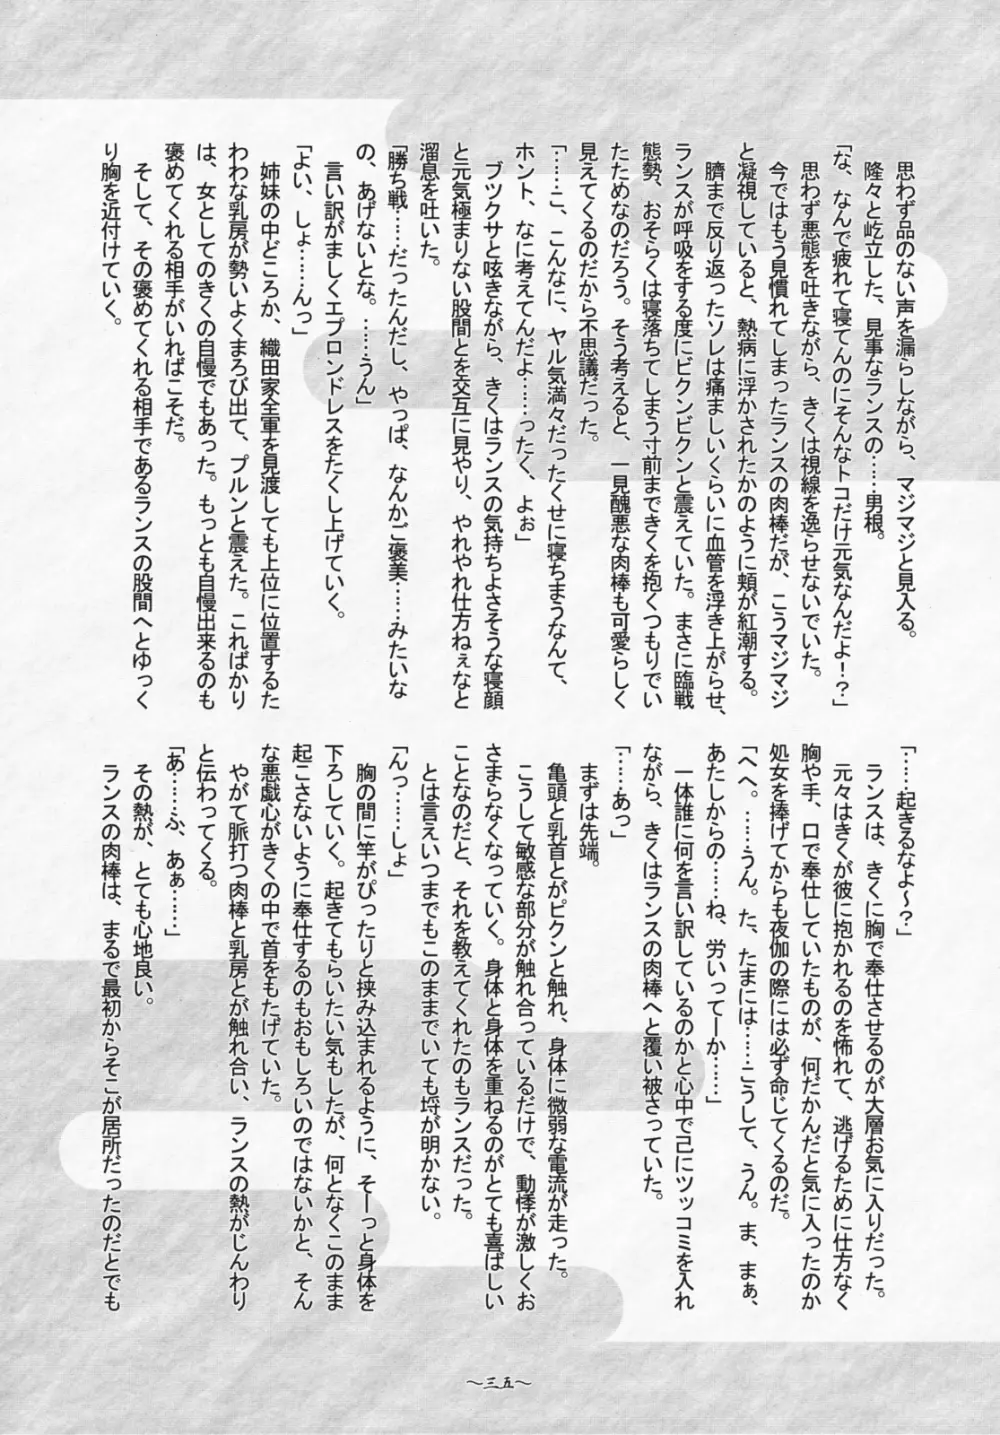 思わず品のない声を漏らしながら、マジマジと見入る。
隆々と屹立した、見事なランスの……男根。
「な、なんで疲れて寝てんのにそんなトコだけ元気なんだよ！？」
思わず悪態を吐きながら、きくは視線を逸らせないでいた。
今ではもう見慣れてしまったランスの肉棒だが、こうマジマジ
と凝視していると、熱病に浮かされたかのように頬が紅潮する。
臍まで反り返ったソレは痛ましいくらいに血管を浮き上がらせ、
ランスが呼吸をする度にビクンビクンと震えていた。まさに臨戦
態勢、おそらくは寝落ちてしまう寸前まできくを抱くつもりでい
たためなのだろう。そう考えると、一見醜悪な肉棒も可愛らしく
見えてくるのだから不思議だった。
「……こ、こんなに、ヤル気満々だったくせに寝ちまうなんて、
ホント、なに考えてんだよ……ったく、よぉ」
ブツクサと呟きながら、きくはランスの気持ちよさそうな寝顔
と元気極まりない股間とを交互に見やり、やれやれ仕方ねぇなと
溜息を吐いた。
「勝ち戦……だったんだし、やっぱ、なんかご褒美……みたいな
の、あげないとな。……うん」
言い訳がましくエプロンドレスをたくし上げていく。
「よい、しょ……んっ」
姉妹の中どころか、織田家全軍を見渡しても上位に位置するた
わわな乳房が勢いよくまろび出て、プルンと震えた。こればかり
は、女としてのきくの自慢でもあった。もっとも自慢出来るのも
褒めてくれる相手がいればこそだ。
そして、その褒めてくれる相手であるランスの股間へとゆっく
り胸を近付けていく。
「……起きるなよ～？」
ランスは、きくに胸で奉仕させるのが大層お気に入りだった。
元々はきくが彼に抱かれるのを怖れて、逃げるために仕方なく
胸や手、口で奉仕していたものが、何だかんだと気に入ったのか
処女を捧げてからも夜伽の際には必ず命じてくるのだ。
「へへ。……うん。た、たまには……こうして、うん。ま、まぁ、
あたしからの……ね、労いってーか……」
一体誰に何を言い訳しているのかと心中で己にツッコミを入れ
ながら、きくはランスの肉棒へと覆い被さっていた。
「……あっ」
まずは先端。
亀頭と乳首とがピクンと触れ、身体に微弱な電流が走った。
こうして敏感な部分が触れ合っているだけで、動悸が激しくお
さまらなくなっていく。身体と身体を重ねるのがとても喜ばしい
ことなのだと、それを教えてくれたのもランスだった。
とは言えいつまでもこのままでいても埒が明かない。
「んっ……しょ」
胸の間に竿がぴったりと挟み込まれるように、そーっと身体を
下ろしていく。起きてもらいたい気もしたが、何となくこのまま
起こさないように奉仕するのもおもしろいのではないかと、そん
な悪戯心がきくの中で首をもたげていた。
やがて脈打つ肉棒と乳房とが触れ合い、ランスの熱がじんわり
と伝わってくる。
「あ……ふ、あぁ……」
その熱が、とても心地良い。
ランスの肉棒は、まるで最初からそこが居所だったのだとでも
～三五～